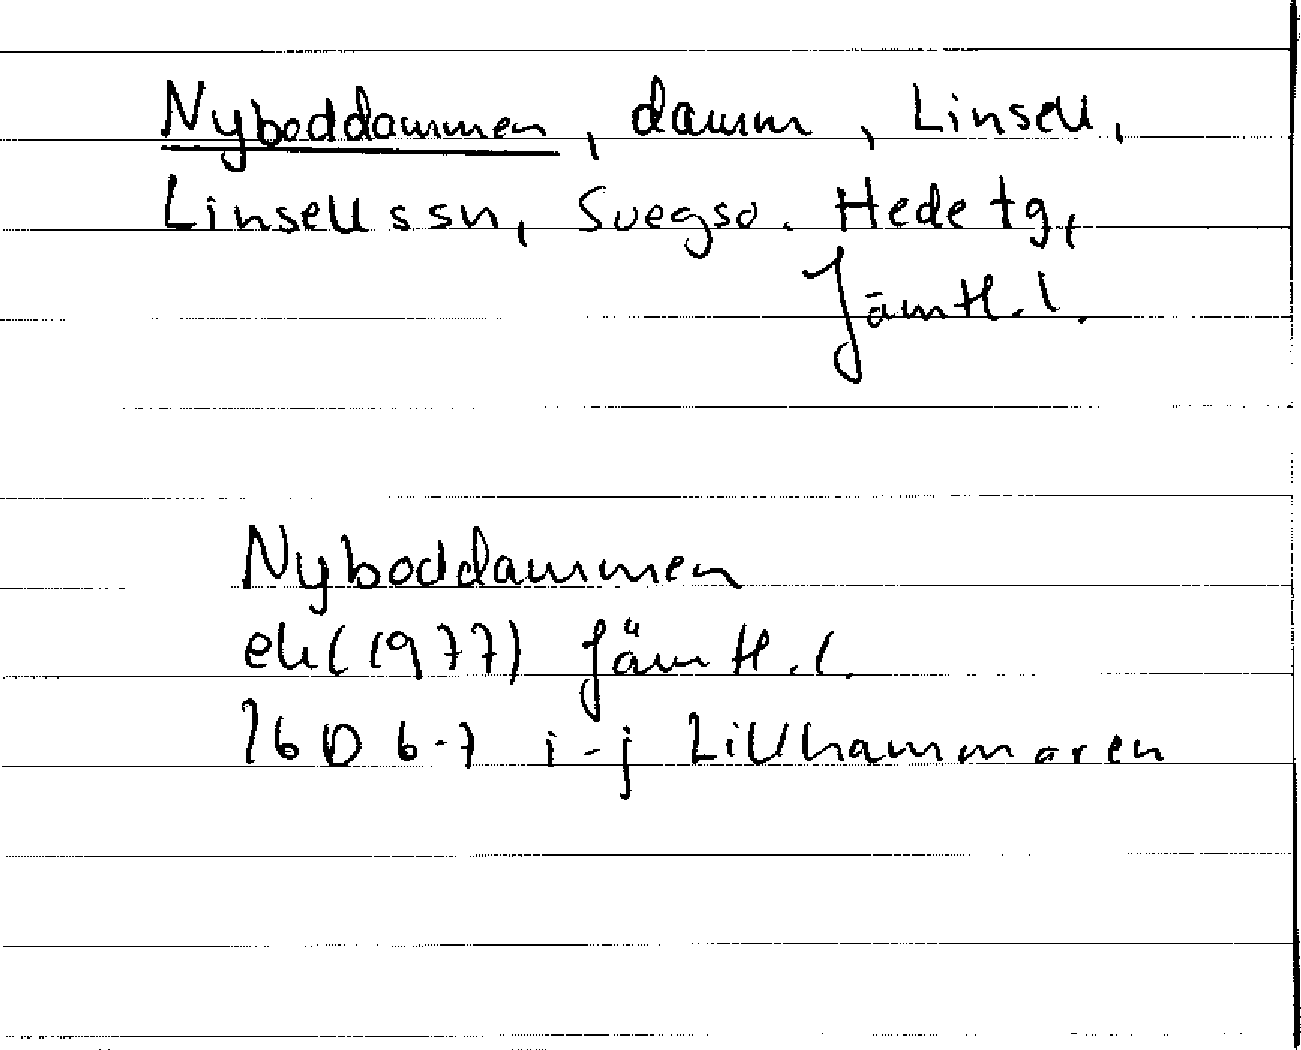 Nyboddammen, damm, Linsell,
Linsells sn, Svegs o. Hede tg,
Jämtl. l.
Nyboddammen
ek (1977) Jämtl. l.
16D 6-7 i-j Lillhammaren